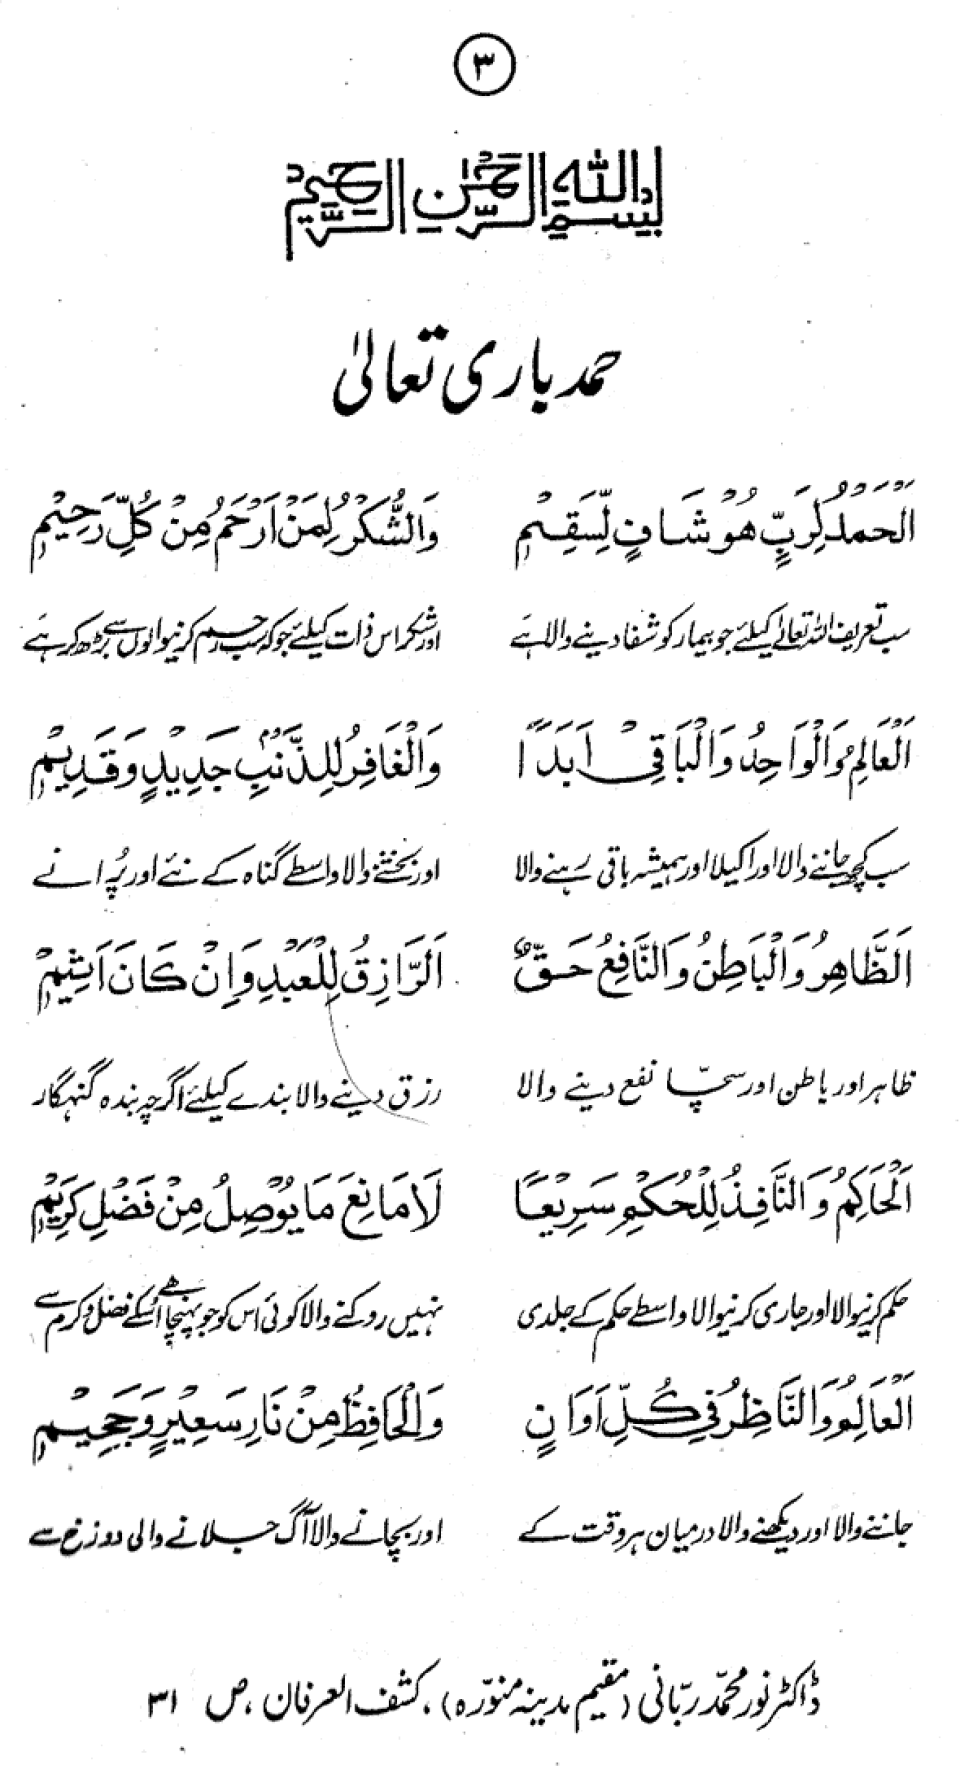 ٣
بِسْمِ اللّٰهِ الرَّحْمٰنِ الرَّحِيْمِ
حمد باری تعالیٰ
اَلْحَمْدُ لِرَبٍّ هُوَ شَافٍ لِّسَقِيْمٍ وَالشُّكْرُ لِمَنْ اَرْحَمُ مِنْ كُلِّ رَحِيْمٍ
سب تعریف اللہ تعالیٰ کیلئے جو بیمار کو شفا دینے والا ہے اور شکر اس ذات کیلئے جو کہ سب رحم کرنیوالوں سے بڑھ کر ہے
اَلْعَالِمُ وَالْوَاحِدُ وَالْبَاقِىْ اَبَدًا وَالْغَافِرُ لِلذَّنْبِ جَدِيْدٍ وَقَدِيْمٍ
سب کچھ جاننے والا اور اکیلا اور ہمیشہ باقی رہنے والا اور بخشنے والا واسطے گناہ کے نئے اور پُرانے
اَلظَّاهِرُ وَالْبَاطِنُ وَالنَّافِعُ حَقٌّ اَلرَّازِقُ لِلْعَبْدِ وَاِنْ كَانَ اَثِيْمٍ
ظاہر اور باطن اور سچّا نفع دینے والا رزق دینے والا بندے کیلئے اگرچہ بندہ گنہگار
اَلْحَاكِمُ وَالنَّافِذُ لِلْحُكْمِ سَرِيْعًا لَا مَانِعَ مَا يُوْصِلُ مِنْ فَضْلِ كَرِيْمٍ
حکم کرنیوالا اور جاری کرنیوالا واسطے حکم کے جلدی نہیں روکنے والا کوئی اس کو جو پہنچائے اسکے فضل و کرم سے
اَلْعَالِمُ وَالنَّاظِرُ فِى كُلِّ اَوَانٍ وَالْحَافِظُ مِنْ نَارِ سَعِيْرٍ وَجَحِيْمٍ
جاننے والا اور دیکھنے والا درمیان ہر وقت کے اور بچانے والا آگ جلانے والی دوزخ سے
ڈاکٹر نور محمّد ربّانی (مقیم مدینہ منوّرہ)، کشف العرفان، ص ٣١